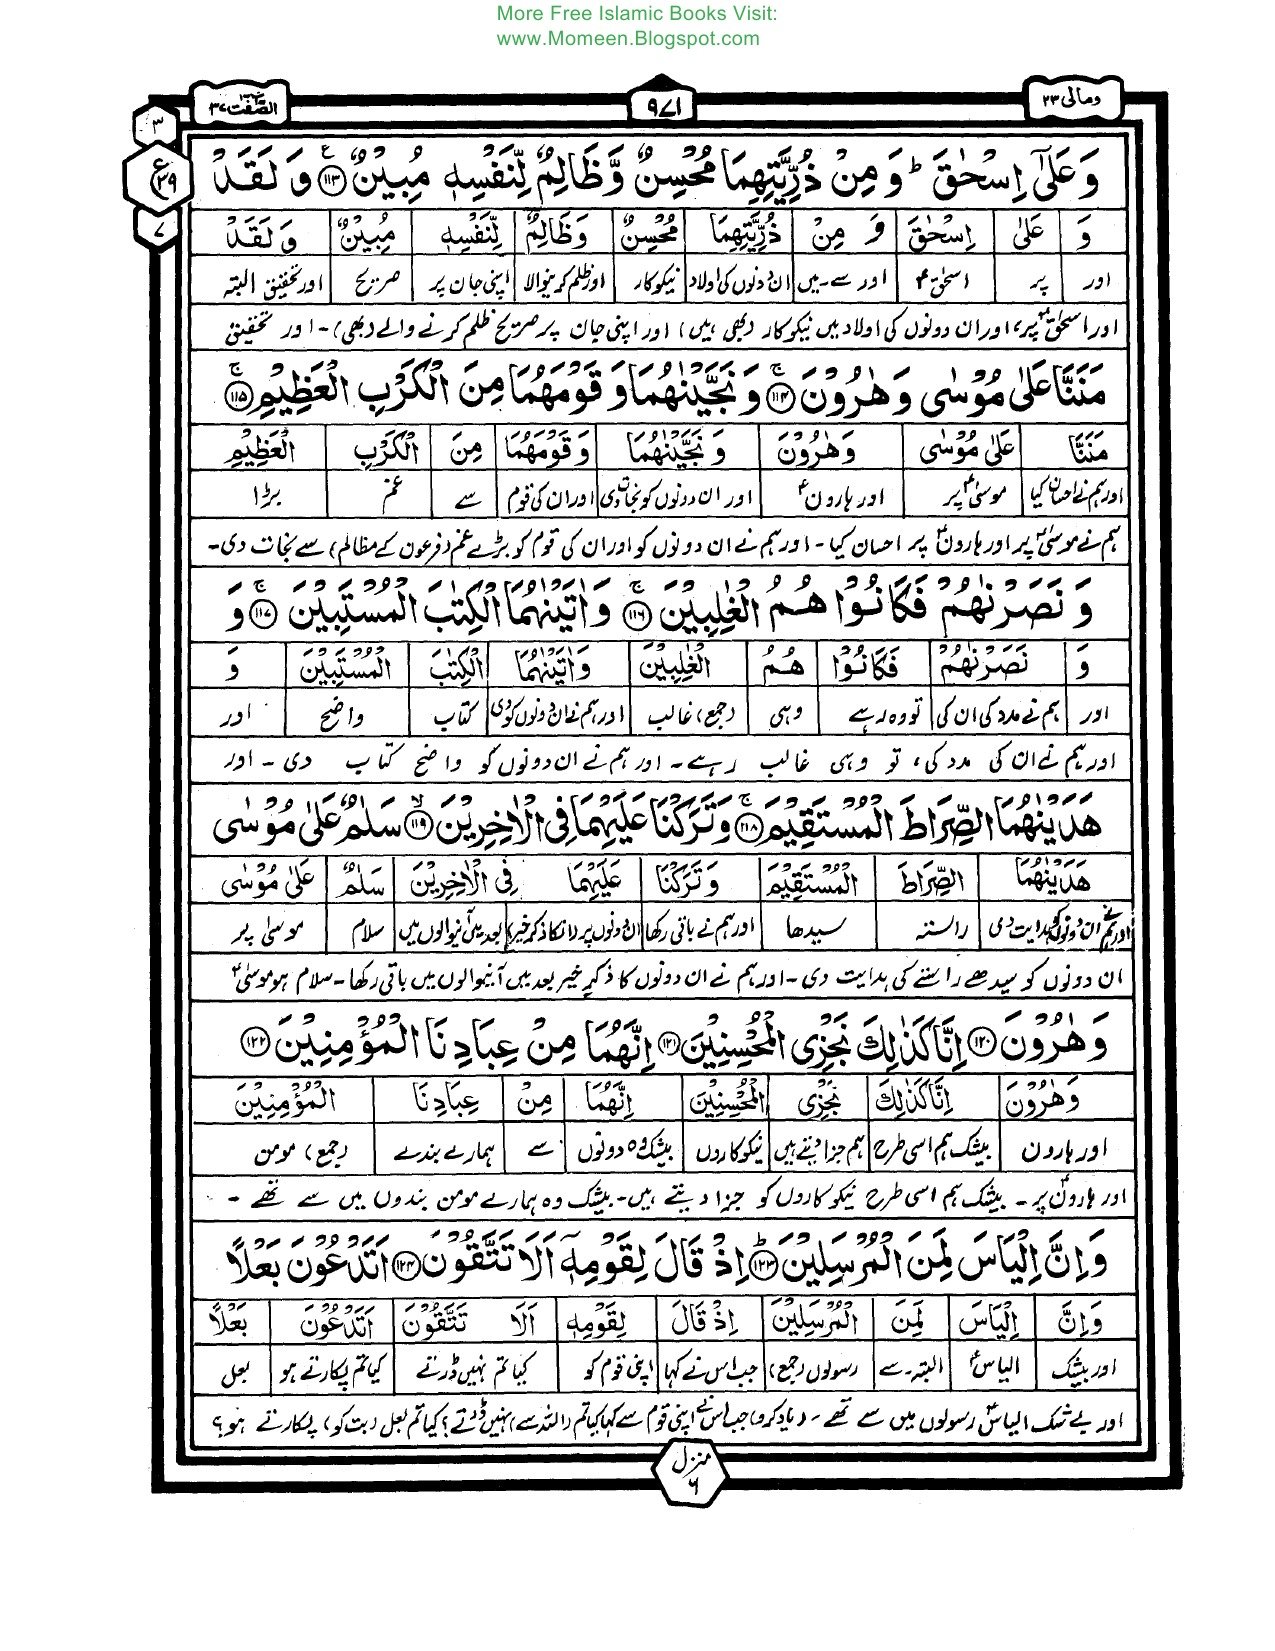 More Free Islamic Books Visit:
www.Momeen.Blogspot.com
ومالی ۲۳
۹۷۱
الصّٰفّٰت ۳۷
۳
ع ۳۹
۷
وَ عَلٰۤى اِسْحٰقَ ؕ وَ مِنْ ذُرِّیَّتِهِمَا مُحْسِنٌ وَّ ظَالِمٌ لِّنَفْسِهٖ مُبِیْنٌ ۝۱۱۳ وَ لَقَدْ
وَ عَلٰى اِسْحٰقَ وَ مِنْ ذُرِّیَّتِهِمَا مُحْسِنٌ وَّظَالِمٌ لِّنَفْسِهٖ مُبِیْنٌ وَلَقَدْ
اور پر اسحٰقؑ اور سے۔میں ان دونوں کی اولاد نیکوکار اور ظلم کرنیوالا اپنی جان پر صریح اور تحقیق البتہ
اور اسحٰقؑ پر، اور ان دونوں کی اولاد میں نیکوکار (بھی ہیں) اور اپنی جان پر صریح ظلم کرنے والے (بھی)۔ اور تحقیق
مَنَنَّا عَلٰى مُوْسٰى وَ هٰرُوْنَ ۝۱۱۴ وَ نَجَّیْنٰهُمَا وَ قَوْمَهُمَا مِنَ الْكَرْبِ الْعَظِیْمِ ۝۱۱۵
مَنَنَّا عَلٰى مُوْسٰى وَهٰرُوْنَ وَ نَجَّیْنٰهُمَا وَ قَوْمَهُمَا مِنَ الْكَرْبِ الْعَظِیْمِ
اور ہم نے احسان کیا موسیٰؑ پر اور ہارونؑ اور ان دونوں کو نجات دی اور ان کی قوم سے غم بڑا
ہم نے موسیٰؑ پر اور ہارونؑ پر احسان کیا۔ اور ہم نے ان دونوں کو اور ان کی قوم کو بڑے غم (فرعون کے مظالم) سے نجات دی۔
وَ نَصَرْنٰهُمْ فَكَانُوْا هُمُ الْغٰلِبِیْنَ ۝۱۱۶ وَ اٰتَیْنٰهُمَا الْكِتٰبَ الْمُسْتَبِیْنَ ۝۱۱۷ وَ
وَ نَصَرْنٰهُمْ فَكَانُوْا هُمُ الْغٰلِبِیْنَ وَاٰتَیْنٰهُمَا الْكِتٰبَ الْمُسْتَبِیْنَ وَ
اور ہم نے مدد کی ان کی تو وہ رہے وہی (جمع) غالب اور ہم نے ان دونوں کو دی کتاب واضح اور
اور ہم نے ان کی مدد کی، تو وہی غالب رہے۔ اور ہم نے ان دونوں کو واضح کتاب دی۔ اور
هَدَیْنٰهُمَا الصِّرَاطَ الْمُسْتَقِیْمَ ۝۱۱۸ وَ تَرَكْنَا عَلَیْهِمَا فِی الْاٰخِرِیْنَ ۝۱۱۹ سَلٰمٌ عَلٰى مُوْسٰى
هَدَیْنٰهُمَا الصِّرَاطَ الْمُسْتَقِیْمَ وَتَرَكْنَا عَلَیْهِمَا فِی الْاٰخِرِیْنَ سَلٰمٌ عَلٰى مُوْسٰى
اور ہم نے ان دونوں کو ہدایت دی راستہ سیدھا اور ہم نے باقی رکھا ان دونوں پر (انکا ذکر خیر) بعد میں آنیوالوں میں سلام موسیٰ پر
ان دونوں کو سیدھے راستے کی ہدایت دی۔ اور ہم نے ان دونوں کا ذکرِ خیر بعد میں آنیوالوں میں باقی رکھا۔ سلام ہو موسیٰؑ
وَ هٰرُوْنَ ۝۱۲۰ اِنَّا كَذٰلِكَ نَجْزِی الْمُحْسِنِیْنَ ۝۱۲۱ اِنَّهُمَا مِنْ عِبَادِنَا الْمُؤْمِنِیْنَ ۝۱۲۲
وَهٰرُوْنَ اِنَّا كَذٰلِكَ نَجْزِی الْمُحْسِنِیْنَ اِنَّهُمَا مِنْ عِبَادِنَا الْمُؤْمِنِیْنَ
اور ہارون بیشک ہم اسی طرح ہم جزا دیتے ہیں نیکوکاروں بیشک وہ دونوں سے ہمارے بندے (جمع) مومن
اور ہارونؑ پر۔ بیشک ہم اسی طرح نیکوکاروں کو جزا دیتے ہیں۔ بیشک وہ ہمارے مومن بندوں میں سے تھے۔
وَ اِنَّ اِلْیَاسَ لَمِنَ الْمُرْسَلِیْنَ ۝۱۲۳ اِذْ قَالَ لِقَوْمِهٖۤ اَلَا تَتَّقُوْنَ ۝۱۲۴ اَتَدْعُوْنَ بَعْلًا
وَاِنَّ اِلْیَاسَ لَمِنَ الْمُرْسَلِیْنَ اِذْ قَالَ لِقَوْمِهٖ اَلَا تَتَّقُوْنَ اَتَدْعُوْنَ بَعْلًا
اور بیشک الیاسؑ البتہ۔سے رسولوں (جمع) جب اس نے کہا اپنی قوم کو کیا تم نہیں ڈرتے کیا تم پکارتے ہو بعل
اور بے شک الیاسؑ رسولوں میں سے تھے۔ (یاد کرو) جب اس نے اپنی قوم سے کہا کیا تم (اللہ سے) نہیں ڈرتے؟ کیا تم بعل (بت کو) پکارتے ہو؟
منزل ۶